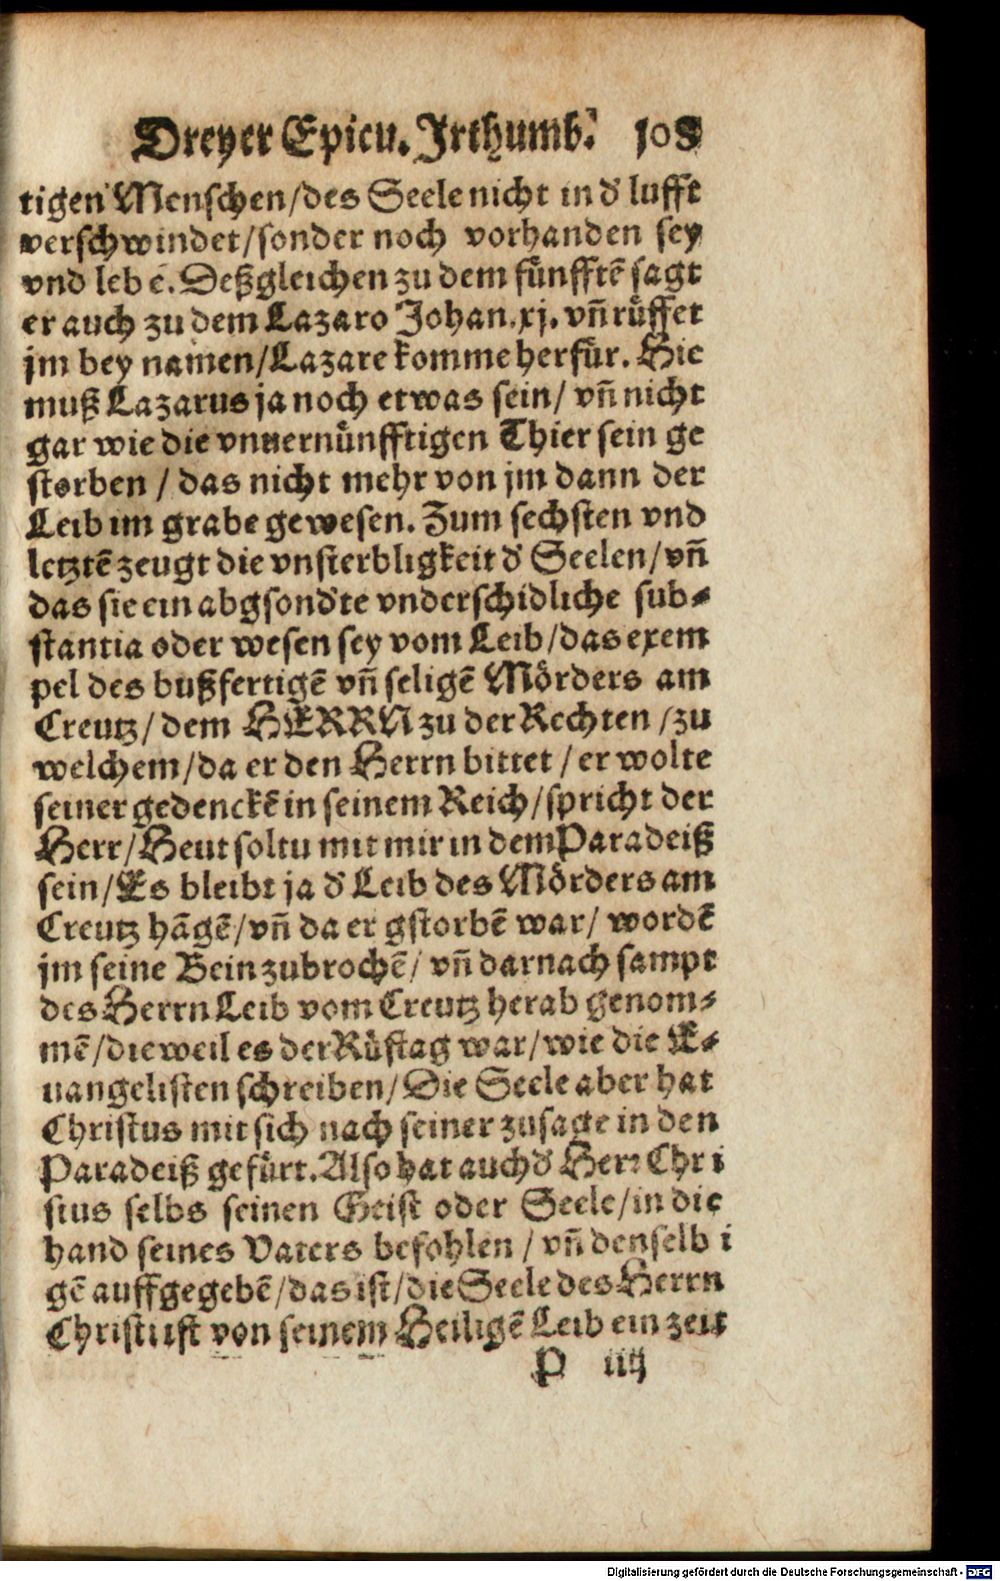 Dreyer Epicu. Jrthumb. 108
tigen Menschen/des Seele nicht in d' lufft
verschwindet/sonder noch vorhanden sey
vnd lebē. Deßgleichen zu dem fünfftē sagt
er auch zu dem Lazaro Johan.xj. vñ rüffet
jm bey namen/Lazare komme herfür. Hie
muß Lazarus ja noch etwas sein/ vñ nicht
gar wie die vnuernünfftigen Thier sein ge
storben / das nicht mehr von jm dann der
Leib im grabe gewesen. Zum sechsten vnd
letztē zeugt die vnsterbligkeit d' Seelen/vñ
das sie ein abgsond'te vnderschidliche sub⸗
stantia oder wesen sey vom Leib/das exem
pel des bußfertigē vñ seligē Mörders am
Creutz/ dem HERRN zu der Rechten /zu
welchem/da er den Herrn bittet / er wolte
seiner gedenckē in seinem Reich/spricht der
Herr/Heut soltu mit mir in dem Paradeiß
sein/Es bleibt ja d' Leib des Mörders am
Creutz hāgē/vñ da er gstorbē war/ wordē
jm seine Bein zubrochē/ vñ darnach sampt
des Herrn Leib vom Creutz herab genom⸗
mē/dieweil es der Rüstag war/wie die E⸗
uangelisten schreiben/Die Seele aber hat
Christus mit sich nach seiner zusage in den
Paradeiß gefürt. Also hat auch d' Herr Chri
stus selbs seinen Geist oder Seele/in die
hand seines Vaters befohlen / vñ denselbi
gē auffgegebē/das ist/die Seele des Herrn
Christi ist von seinem Heiligē Leib ein zeit
P iiij
Digitalisierung gefördert durch die Deutsche Forschungsgemeinschaft - DFG